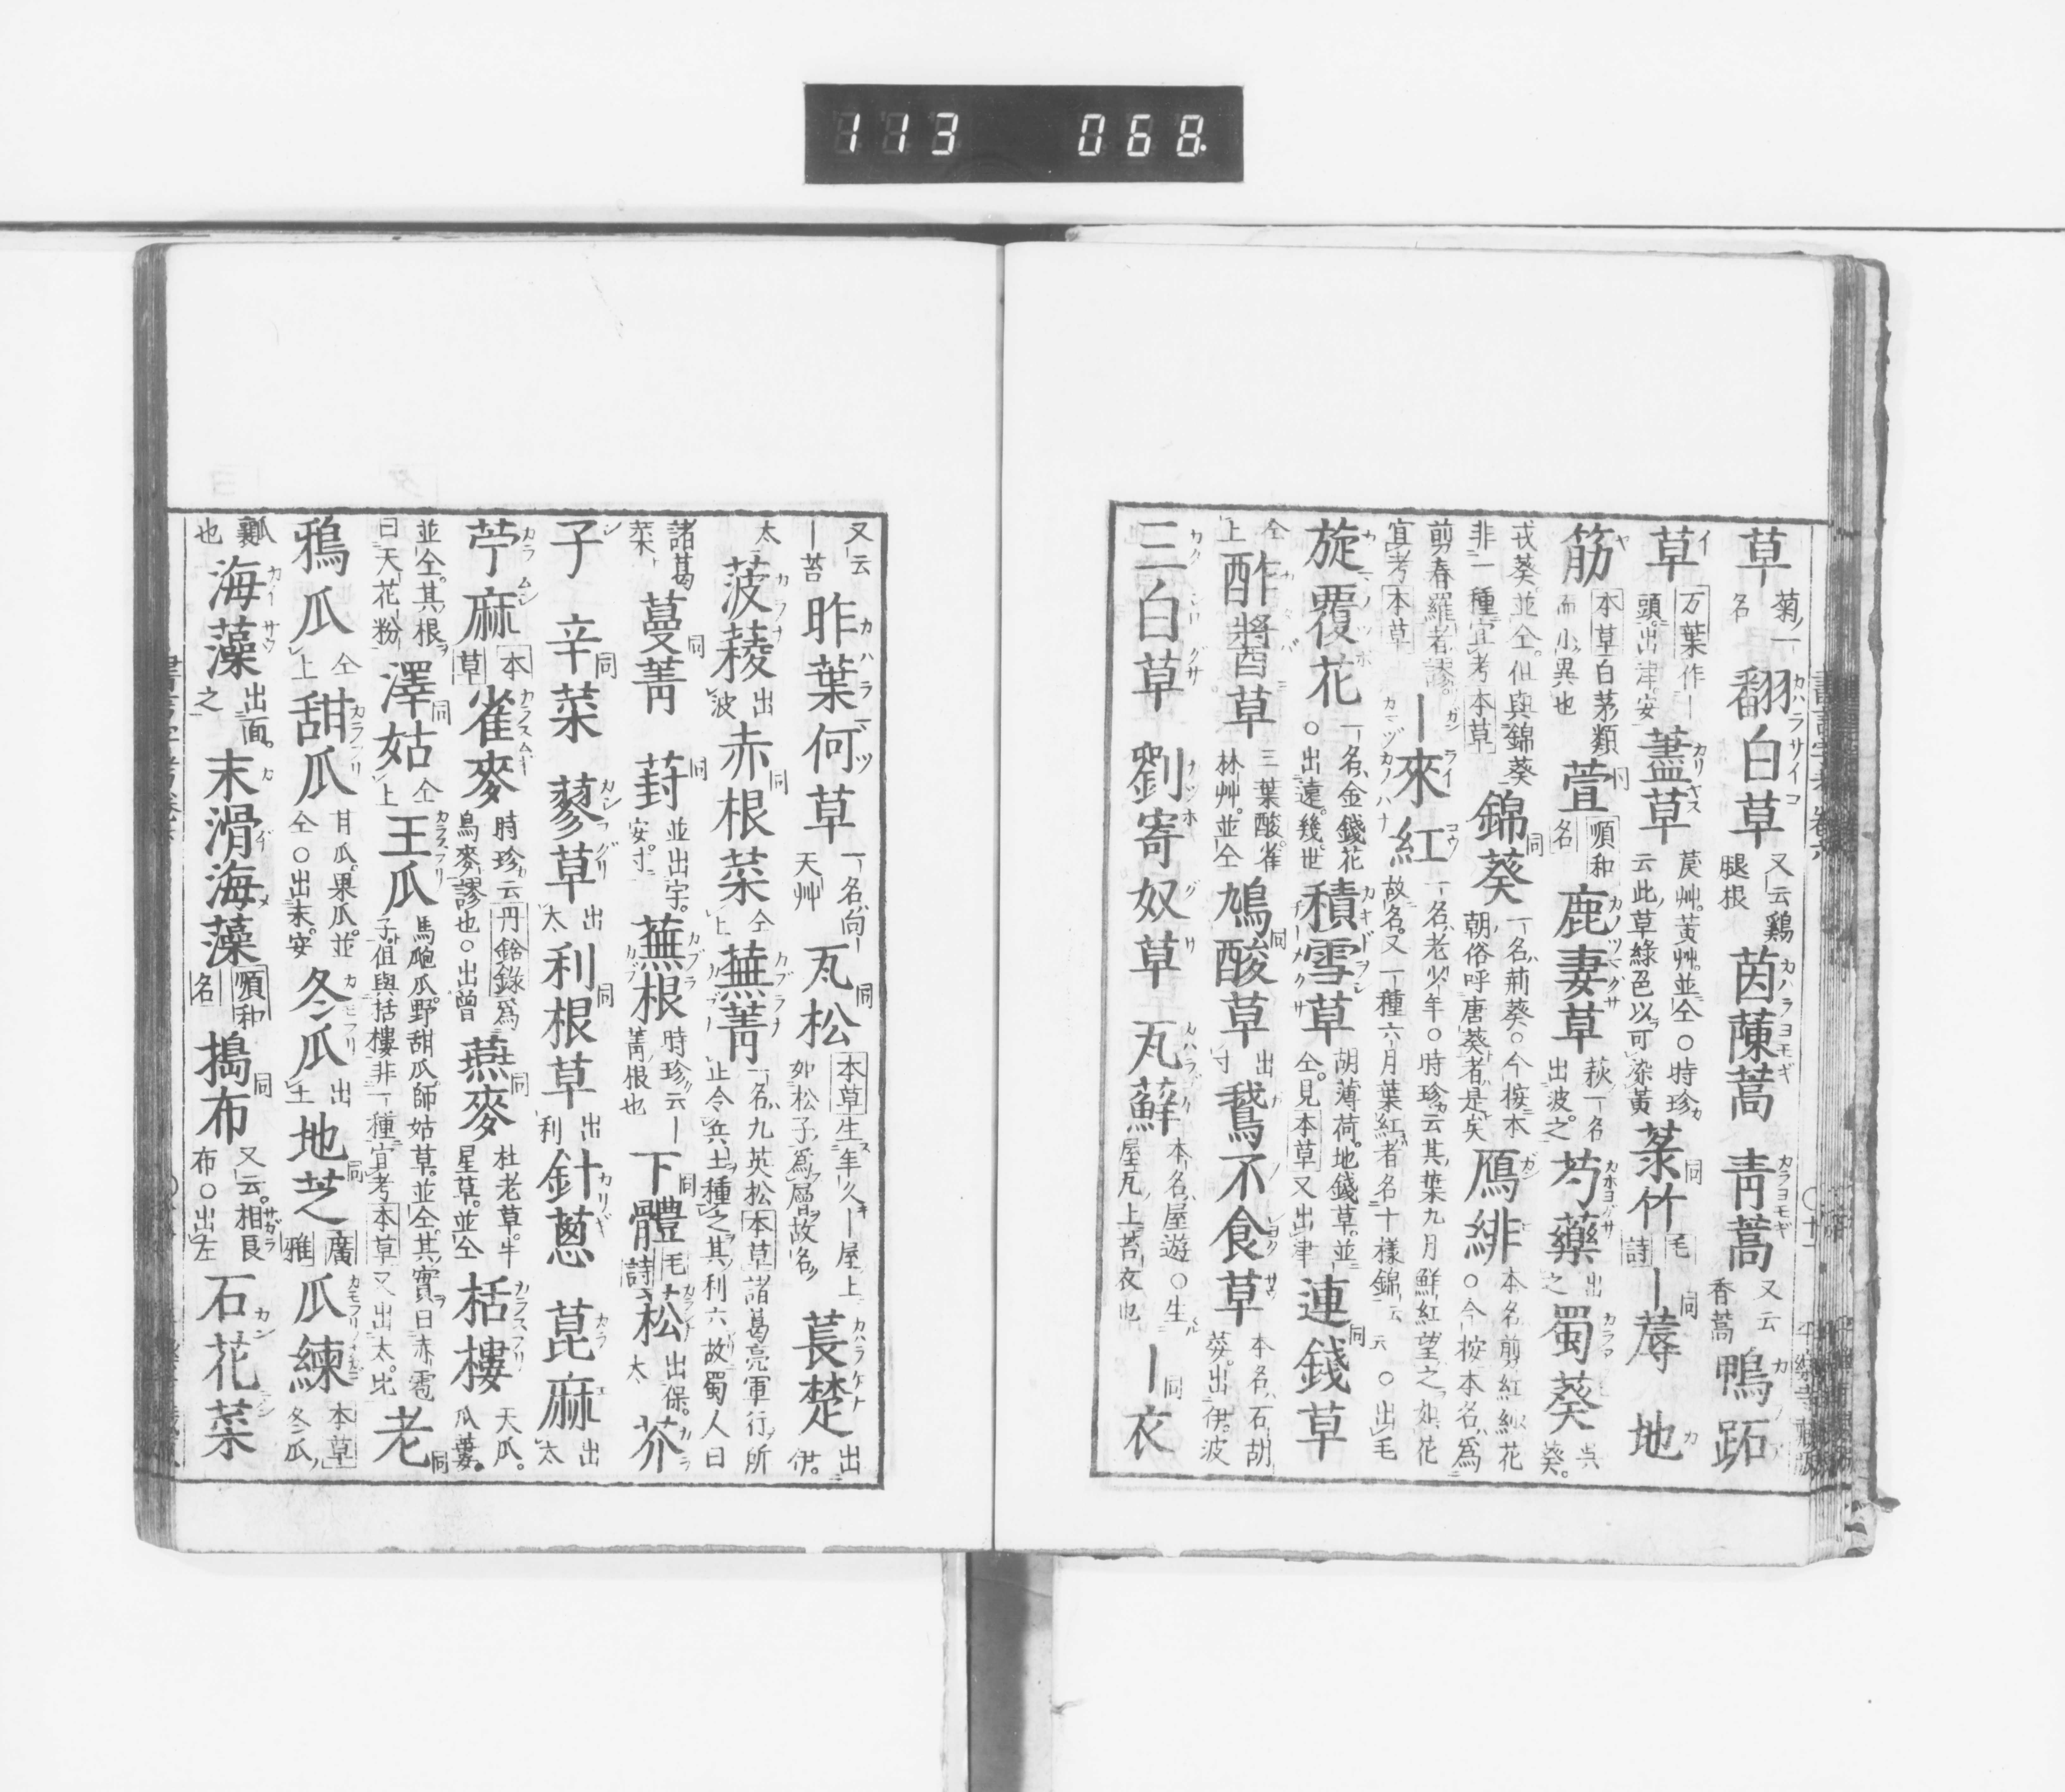 113 068
草 菊ノ一名 翻白草 又云鷄腿根 茵蔯蒿 青蒿 又云香蒿 鴨跖
草 万葉作｜頭出津安 藎草 菉艸黃艸並仝○時珍云此草綠色以可染黃 菉竹 毛詩 ｜蓐 地
筋 本草白茅類而小異也 萱 順和名 鹿妻草 萩ノ一名出波之 芍藥 出之 蜀葵 呉葵
戎葵並仝但與錦葵非一種宜考本草 錦葵 一名荊葵○今按本朝俗呼唐葵者是矣 鴈緋 本名剪紅紗花○今按本名爲
剪春羅者謬宜考本草 ｜來紅 一名老少年○時珍云其葉九月鮮紅望之如花故名又一種六月葉紅者名十樣錦云云○出毛
旋覆花 一名金錢花○出遠幾世 積雪草 胡薄荷地錢草並仝見本草又出津 連錢草
仝上 酢將酉草 三葉酸雀林艸並仝 鳩酸草 出寸 鵞不食草 本名石胡荽出伊波
三白草 劉寄奴草 瓦蘚 本名屋遊○生屋瓦上苔衣也 ｜衣
又云｜苔 昨葉何草 一名向天艸 瓦松 本草生年久｜屋上如松子爲層故名 萇楚 出伊
太 菠薐 出波 赤根菜 仝上 蕪菁 一名九英松本草諸葛亮軍行所止令兵士種之其利六故蜀人曰
諸葛菜 蔓菁 葑 並出宇安寸 蕪根 時珍云｜菁根也 下體 毛詩 菘 出保太 芥
子 辛菜 蓼草 出太 利根草 出利 針蔥 萞麻 出太
苧麻 本草 雀麥 時珍云丹鉛錄爲烏麥謬也○出曾 燕麥 杜老草牛星草並仝 栝樓 天瓜瓜蔞
並仝其根曰天花粉 澤姑 仝上 王瓜 馬㼎瓜野甜瓜師姑草並仝其實曰赤雹子但與括樓非一種宜考本草又出太比 老
鴉瓜 仝上 甜瓜 甘瓜果瓜並仝○出末安 冬瓜 出土 地芝 廣雅 瓜練 本草冬瓜
瓤也 海藻 出面之 末滑海藻 順和名 搗布 又云相良布○出左 石花菜